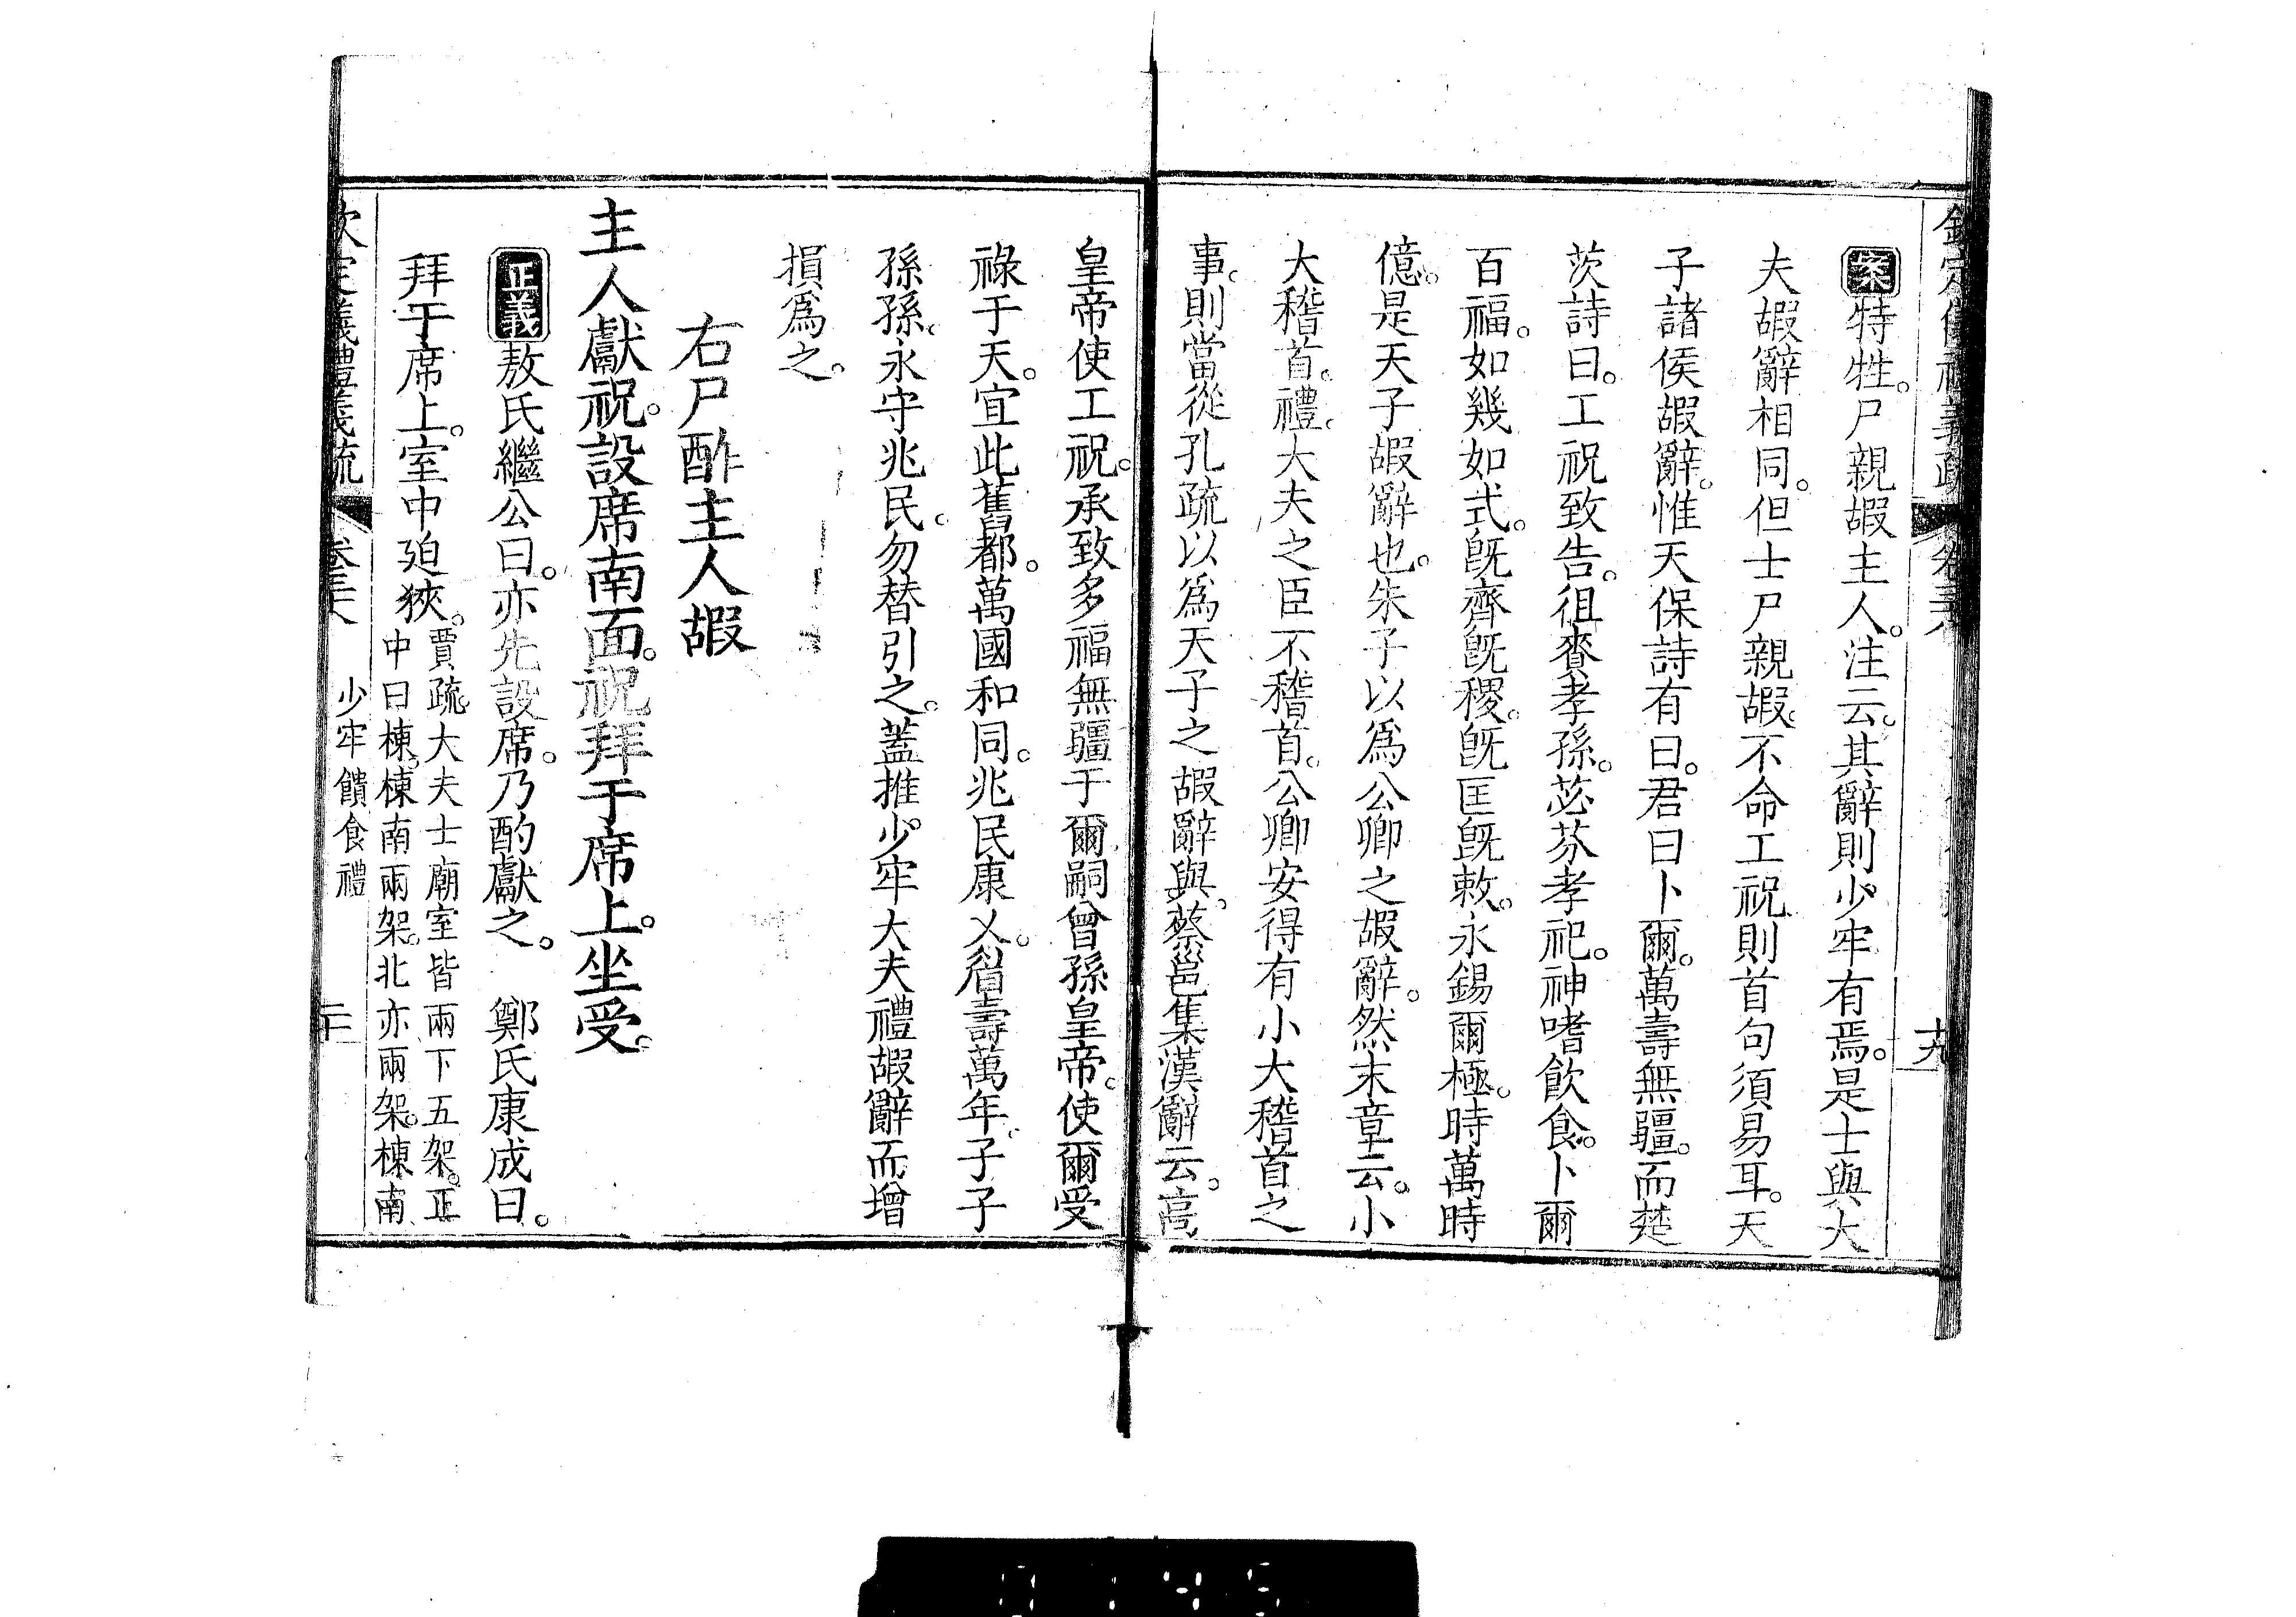 欽定儀禮義疏 卷三十八 十九
案特牲。尸親嘏主人。注云。其辭則少牢有焉。是士與大
夫嘏辭相同。但士尸親嘏。不命工祝則首句須易耳。天
子諸侯嘏辭。惟天保詩有曰。君曰卜爾。萬壽無疆。而楚
茨詩曰。工祝致告。徂賚孝孫。苾芬孝祀。神嗜飲食。卜爾
百福。如幾如式。旣齊旣稷。旣匡旣敕。永錫爾極。時萬時
億。是天子嘏辭也。朱子以爲公卿之嘏辭。然末章云。小
大稽首。禮。大夫之臣不稽首。公卿安得有小大稽首之
事。則當從孔疏以爲天子之嘏辭與。蔡邕集漢辭云。高
皇帝使工祝。承致多福無疆于爾嗣曾孫皇帝。使爾受
祿于天。宜此舊都。萬國和同。兆民康乂。眉壽萬年。子子
孫孫。永守兆民。勿替引之。蓋推少牢大夫禮嘏辭而增
損爲之。
右尸酢主人嘏
主人獻祝。設席南面。祝拜于席上。坐受。
正義敖氏繼公曰。亦先設席。乃酌獻之。 鄭氏康成曰。
拜于席上。室中廹狹。賈疏。大夫士廟室皆兩下五架。正
中曰棟。棟南兩架。北亦兩架。棟南
欽定儀禮義疏 卷三十八 少牢饋食禮 二十